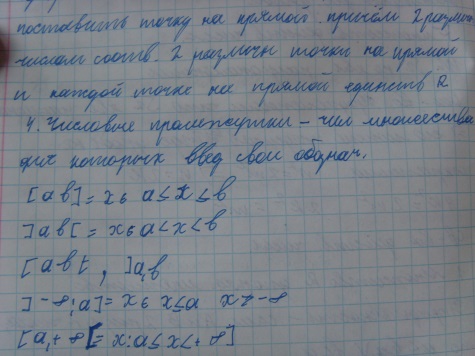 поставить точку на прямой. причём 2 различ
числам соотв. 2 различн точки на прямой
и каждой точке на прямой единств R
4. Числовые промежутки – чис множества
для которых введ свои обознач.
[a b] = x є a ≤ x ≤ b
]a b[ = x є a < x < b
[a b[ , ]a, b
]-∞; a] = x є x ≤ a x > -∞
[a, +∞[ = x: a ≤ x < +∞]